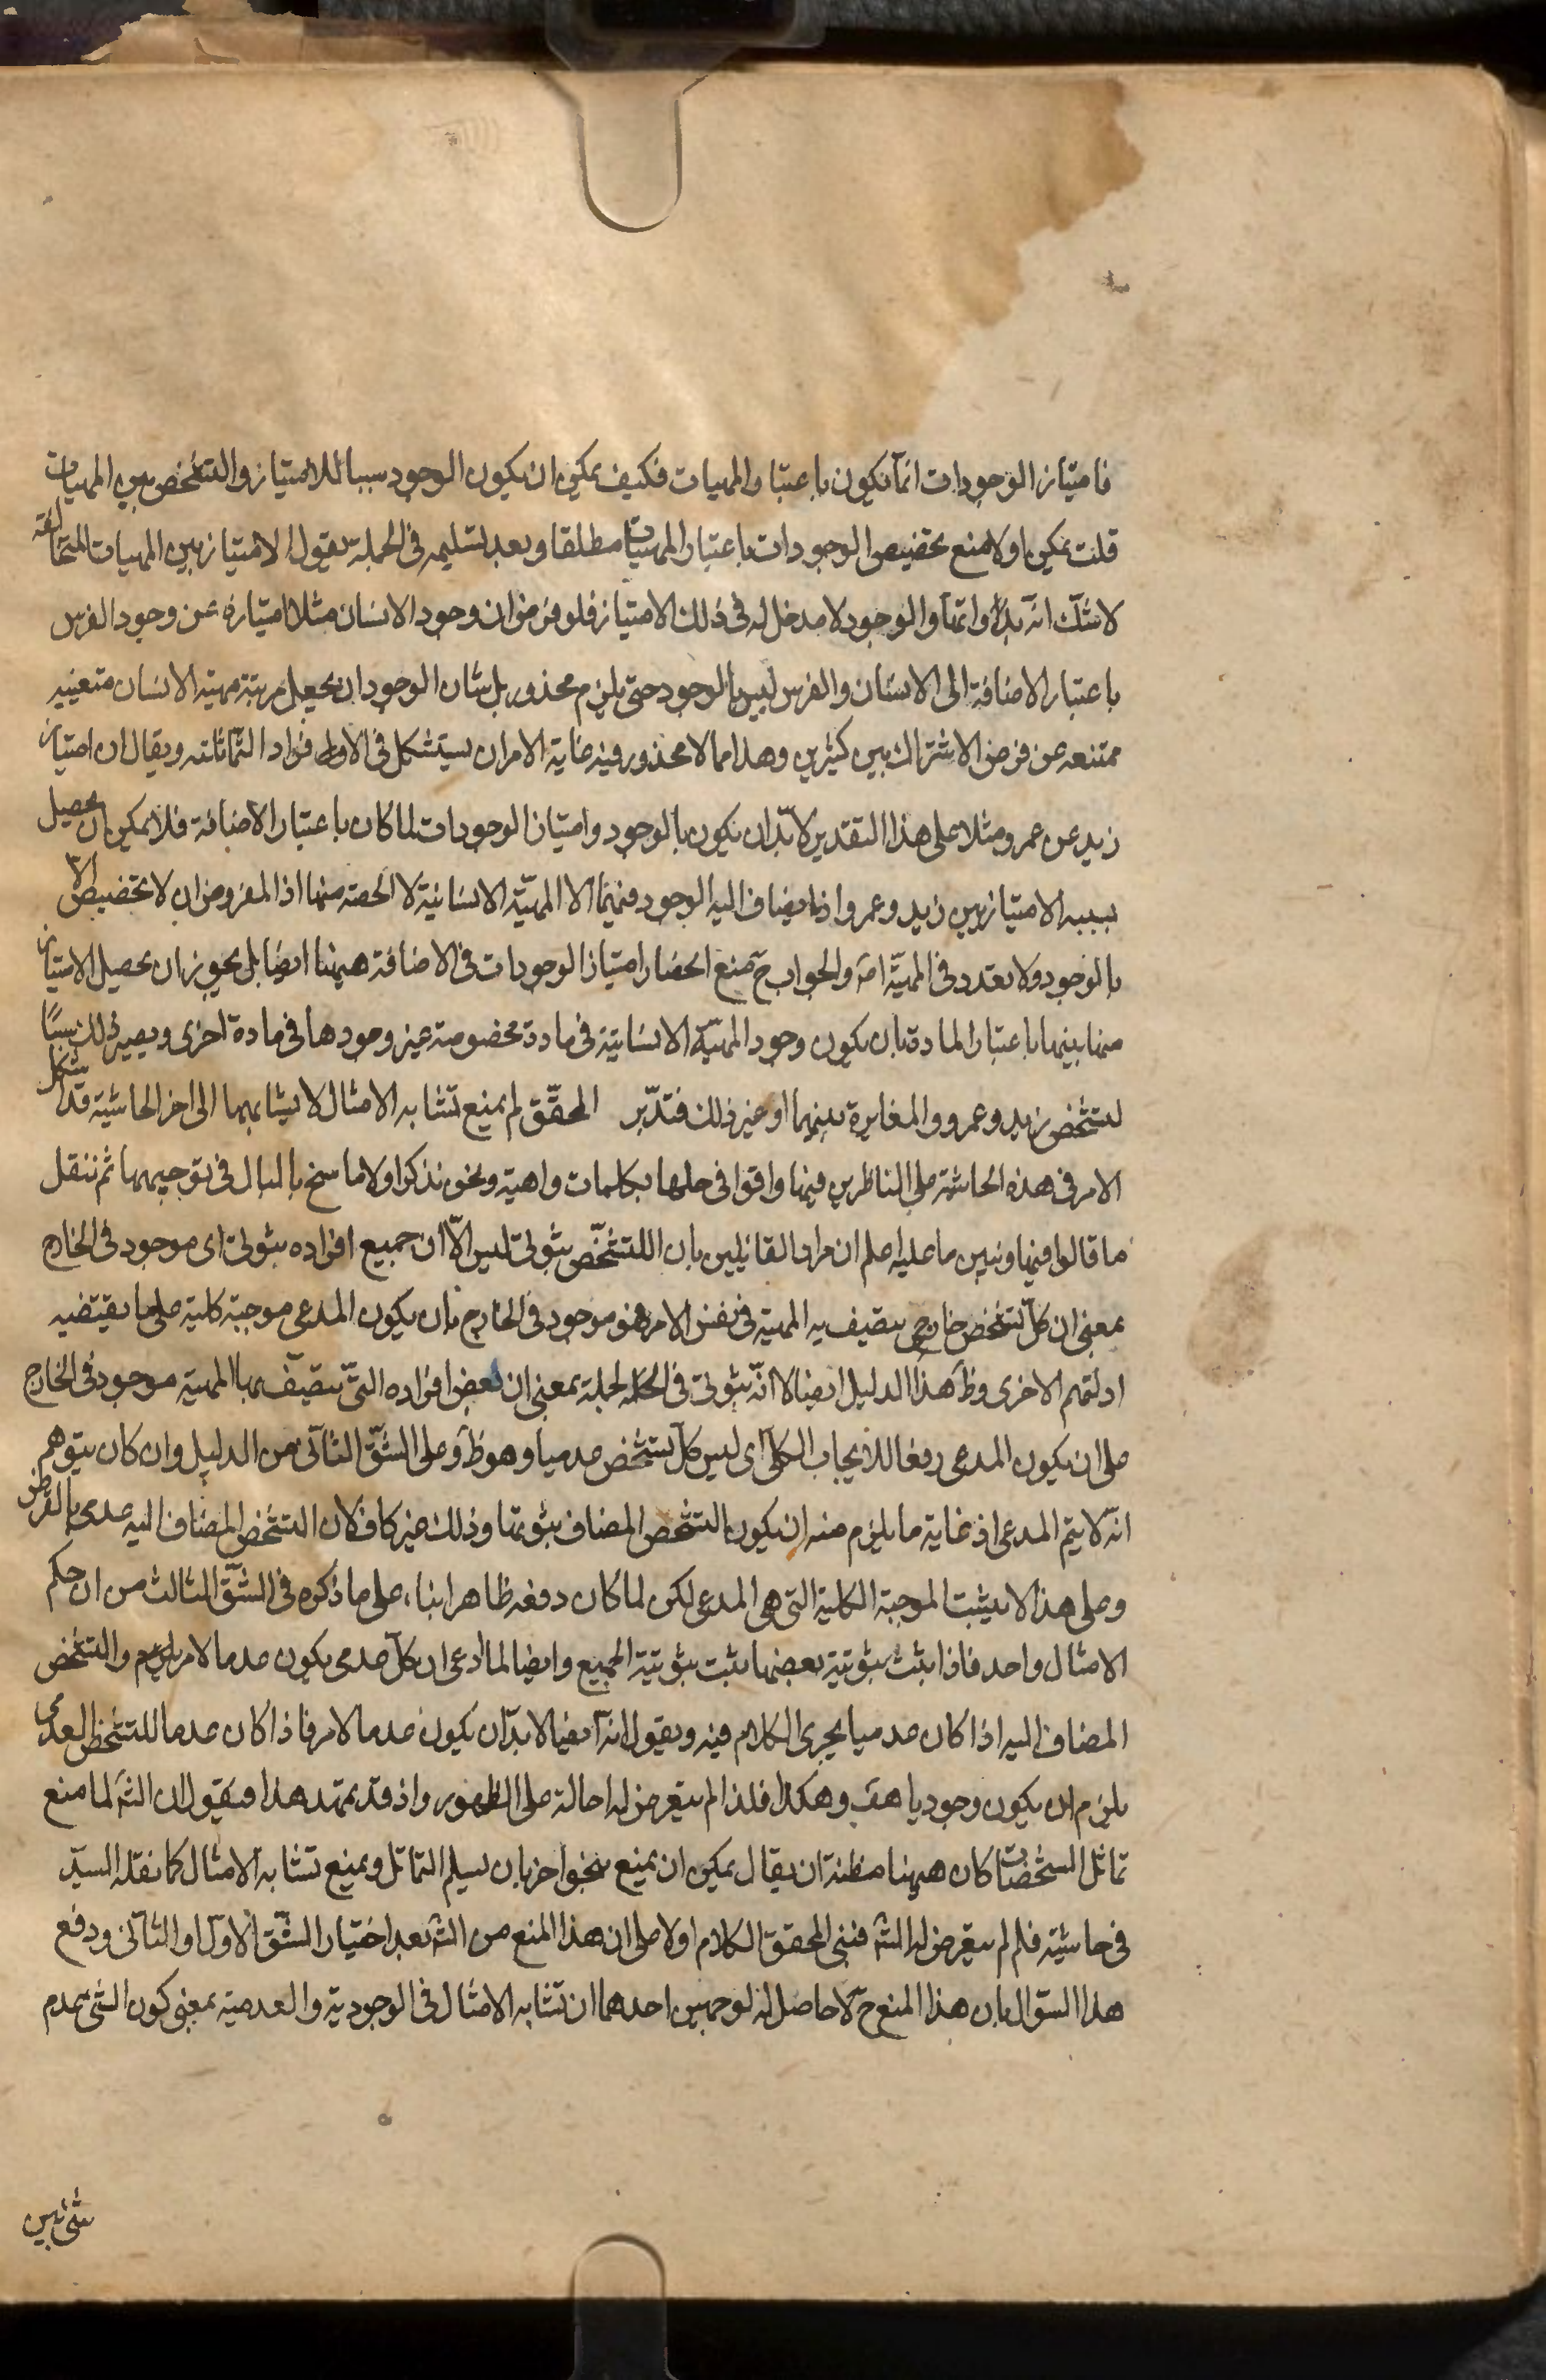 فامتياز الوجودات انما يكون باعتبار المهيات فكيف يمكن ان يكون الوجود سببا للامتياز والتشخص بين المهيات
قلت يمكن اولا منع تخصيص الوجودات باعتبار المهيات مطلقا وبعد تسليمه فى الجملة نقول الامتياز بين المهيات المتخالفة
لا شك انه بذواتها والوجود لا مدخل له فى ذلك الامتياز فلو فرض ان وجود الانسان مثلا امتيازه عن وجود الفرس
باعتبار الاضافة الى الانسان والفرس ليس بالوجود حتى يلزم محذور بل شان الوجود ان يجعل مرتبة مهية الانسان متعينه
ممتنعه عن فرض الاشتراك بين كثيرين وهذا مما لا محذور فيه غاية الامر ان يستشكل فى الافراد المتماثلة ويقال ان امتياز
زيد عن عمرو مثلا على هذا التقدير لا بد ان يكون بالوجود وامتياز الوجودات لما كان باعتبار الاضافة فلا يمكن ان يحصل
بسببه الامتياز بين زيد وعمرو اذ ما يضاف اليه الوجود فيهما الا المهية الانسانية لا الحصة منها اذ المفروض ان لا تخصيص الا
بالوجود ولا تعدد فى المهية امة والجواب ح منع انحصار امتياز الوجودات فى الاضافة هيهنا ايضا بل يجوز ان يحصل الامتياز
منها بينهما باعتبار المادة بان يكون وجود المهية الانسانية فى مادة مخصوصة غير وجودها فى مادة اخرى ويصير ذلك سببًا
لتشخص زيد وعمرو والمغايرة بينهما او غير ذلك فتدبر المحقق لم يمنع تشابه الامثال لا يشابهها الى اخر الحاشية قد اشكل
الامر فى هذه الحاشية على الناظرين فيها واقوا فى حلها بكلمات واهية ونحن نذكر اولا ما سنح بالبال فى توجيهها ثم ننقل
ما قالوا فيها ونبين ما عليه اعلم ان مراد القائلين بان التشخص ثبوتى ليس الا ان جميع افراده ثبوتى اى موجود فى الخارج
بمعنى ان كل تشخص خارجى يتصف به المهية فى نفس الامر فهو موجود فى الخارج بان يكون المدعى موجبة كلية على ما يقتضيه
ادلتهم الاخرى وظ هذا الدليل ايضا لا انه ثبوتى فى الجملة بمعنى ان بعض افراده التى يتصف بها المهية موجود فى الخارج
على ان يكون المدعى رفعا للايجاب الكلى اى ليس كل تشخص عدميا وهو ظ وعلى الشق الثانى من الدليل وان كان يتوهم
انه لا يتم المدعى اذ غاية ما يلزم منه ان يكون التشخص المضاف ثبوتيا وذلك غير كاف لان التشخص المضاف اليه عدمى بالفرض
وعلى هذا لا يثبت الموجبة الكلية التى هى المدعى لكن لما كان دفعه ظاهرا بناء على ما ذكره فى الشق الثالث من ان حكم
الامثال واحد فاذا ثبت ثبوتية بعضها يثبت ثبوتية الجميع وايضا لما ادعى ان كل عدمى يكون عدما لامر يلزم والتشخص
المضاف اليه اذا كان عدميا يجرى الكلام فيه ويقول انه ايضا لا بد ان يكون عدما لامر فاذا كان عدما للتشخص العدمى
يلزم ان يكون وجوديا هف وهكذا فلذا لم يتعرض له احالة على الظهور واذ قد تمهد هذا فنقول ان الشه لما منع
تماثل التشخصات كان هيهنا مظنة ان يقال يمكن ان يمنع بنحو اخر بان يسلم التماثل ويمنع تشابه الامثال كما نقله السيد
فى حاشيته فلم لم يتعرض له الشه فبنى المحقق الكلام اولا على ان هذا المنع من الشه بعد اختيار الشق الاول او الثانى ودفع
هذا السؤال بان هذا المنع ح لا حاصل له لوجهين احدهما ان تشابه الامثال فى الوجودية والعدمية بمعنى كون الشى عدم
شى بين